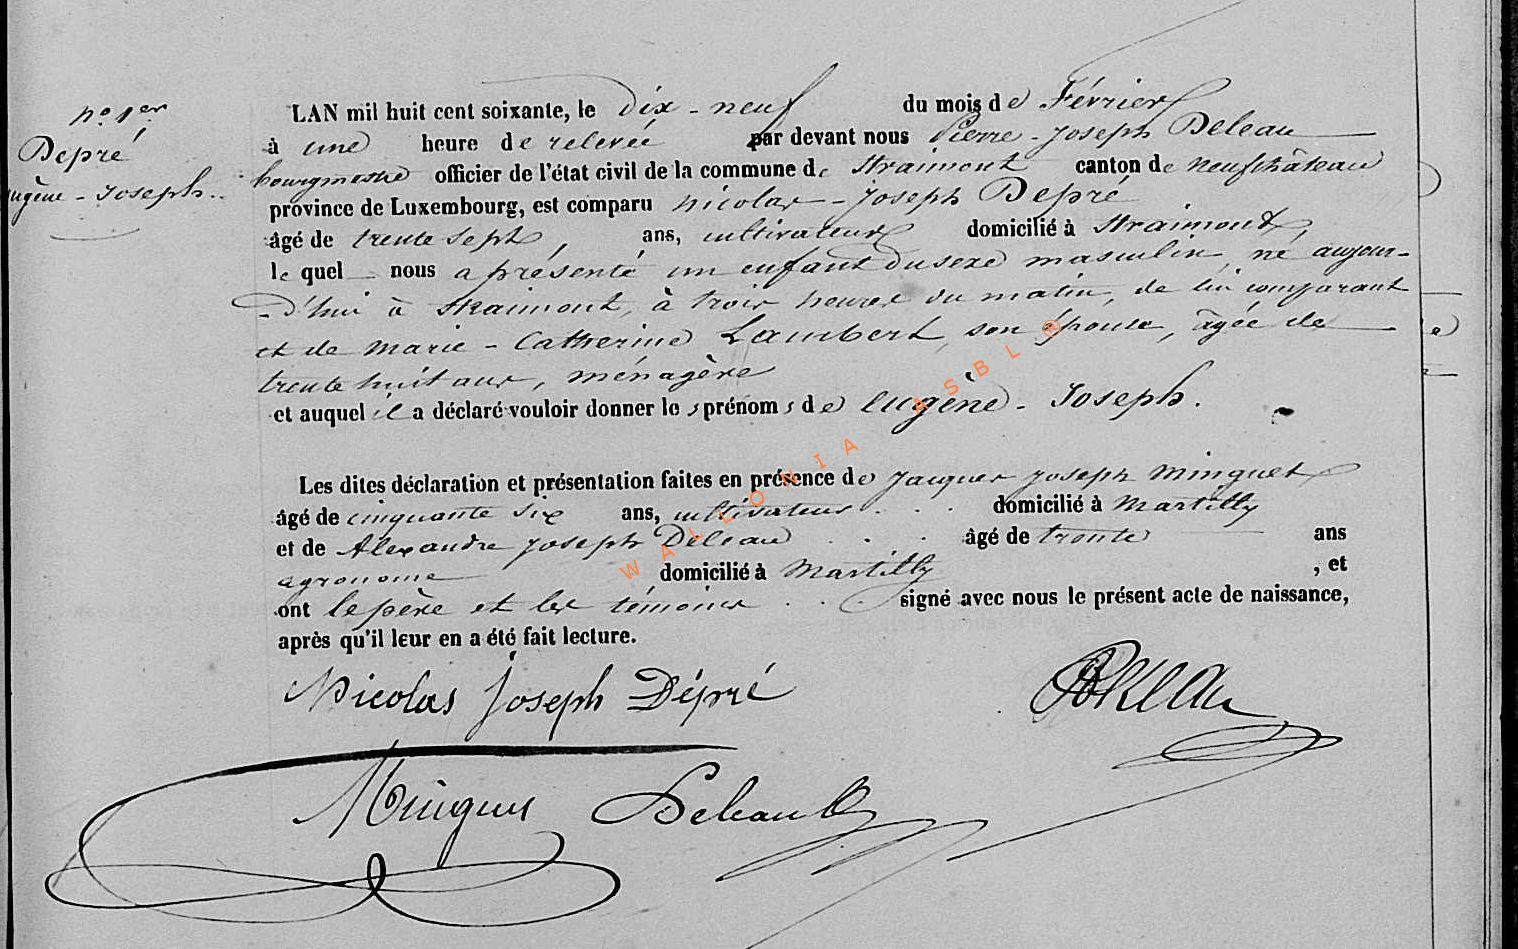 n° 1er
Depré
ugène - Joseph..
LAN mil huit cent soixante, le dix - neuf du mois de Février
à une heure de relevée par devant nous Pierre - Joseph Deleau
bourgmestre officier de l'état civil de la commune de Straimont canton de neufchâteau
province de Luxembourg, est comparu nicolas - Joseph Depré
âgé de trente sept, ans, cultivateur domicilié à Straimont,
le quel nous a présenté un enfant du sexe masculin, né aujour-
-d'hui à Straimont, à trois heures du matin, de lui comparant
et de marie - Catherine Lambert, son épouse, âgée de
trente huit ans, ménagère
et auquel il a déclaré vouloir donner les prénoms de Eugène - Joseph.
Les dites déclaration et présentation faites en présence de Jacques Joseph Minguet
âgé de cinquante six ans, cultivateur . . . domicilié à Martilly
et de Alexandre Joseph Deleau . . . âgé de trente ans
agronome domicilié à Martilly , et
ont le père et les témoins . . . signé avec nous le présent acte de naissance,
après qu'il leur en a été fait lecture.
Nicolas Joseph Dépré
Deleau
WALLONIA ASBL ©